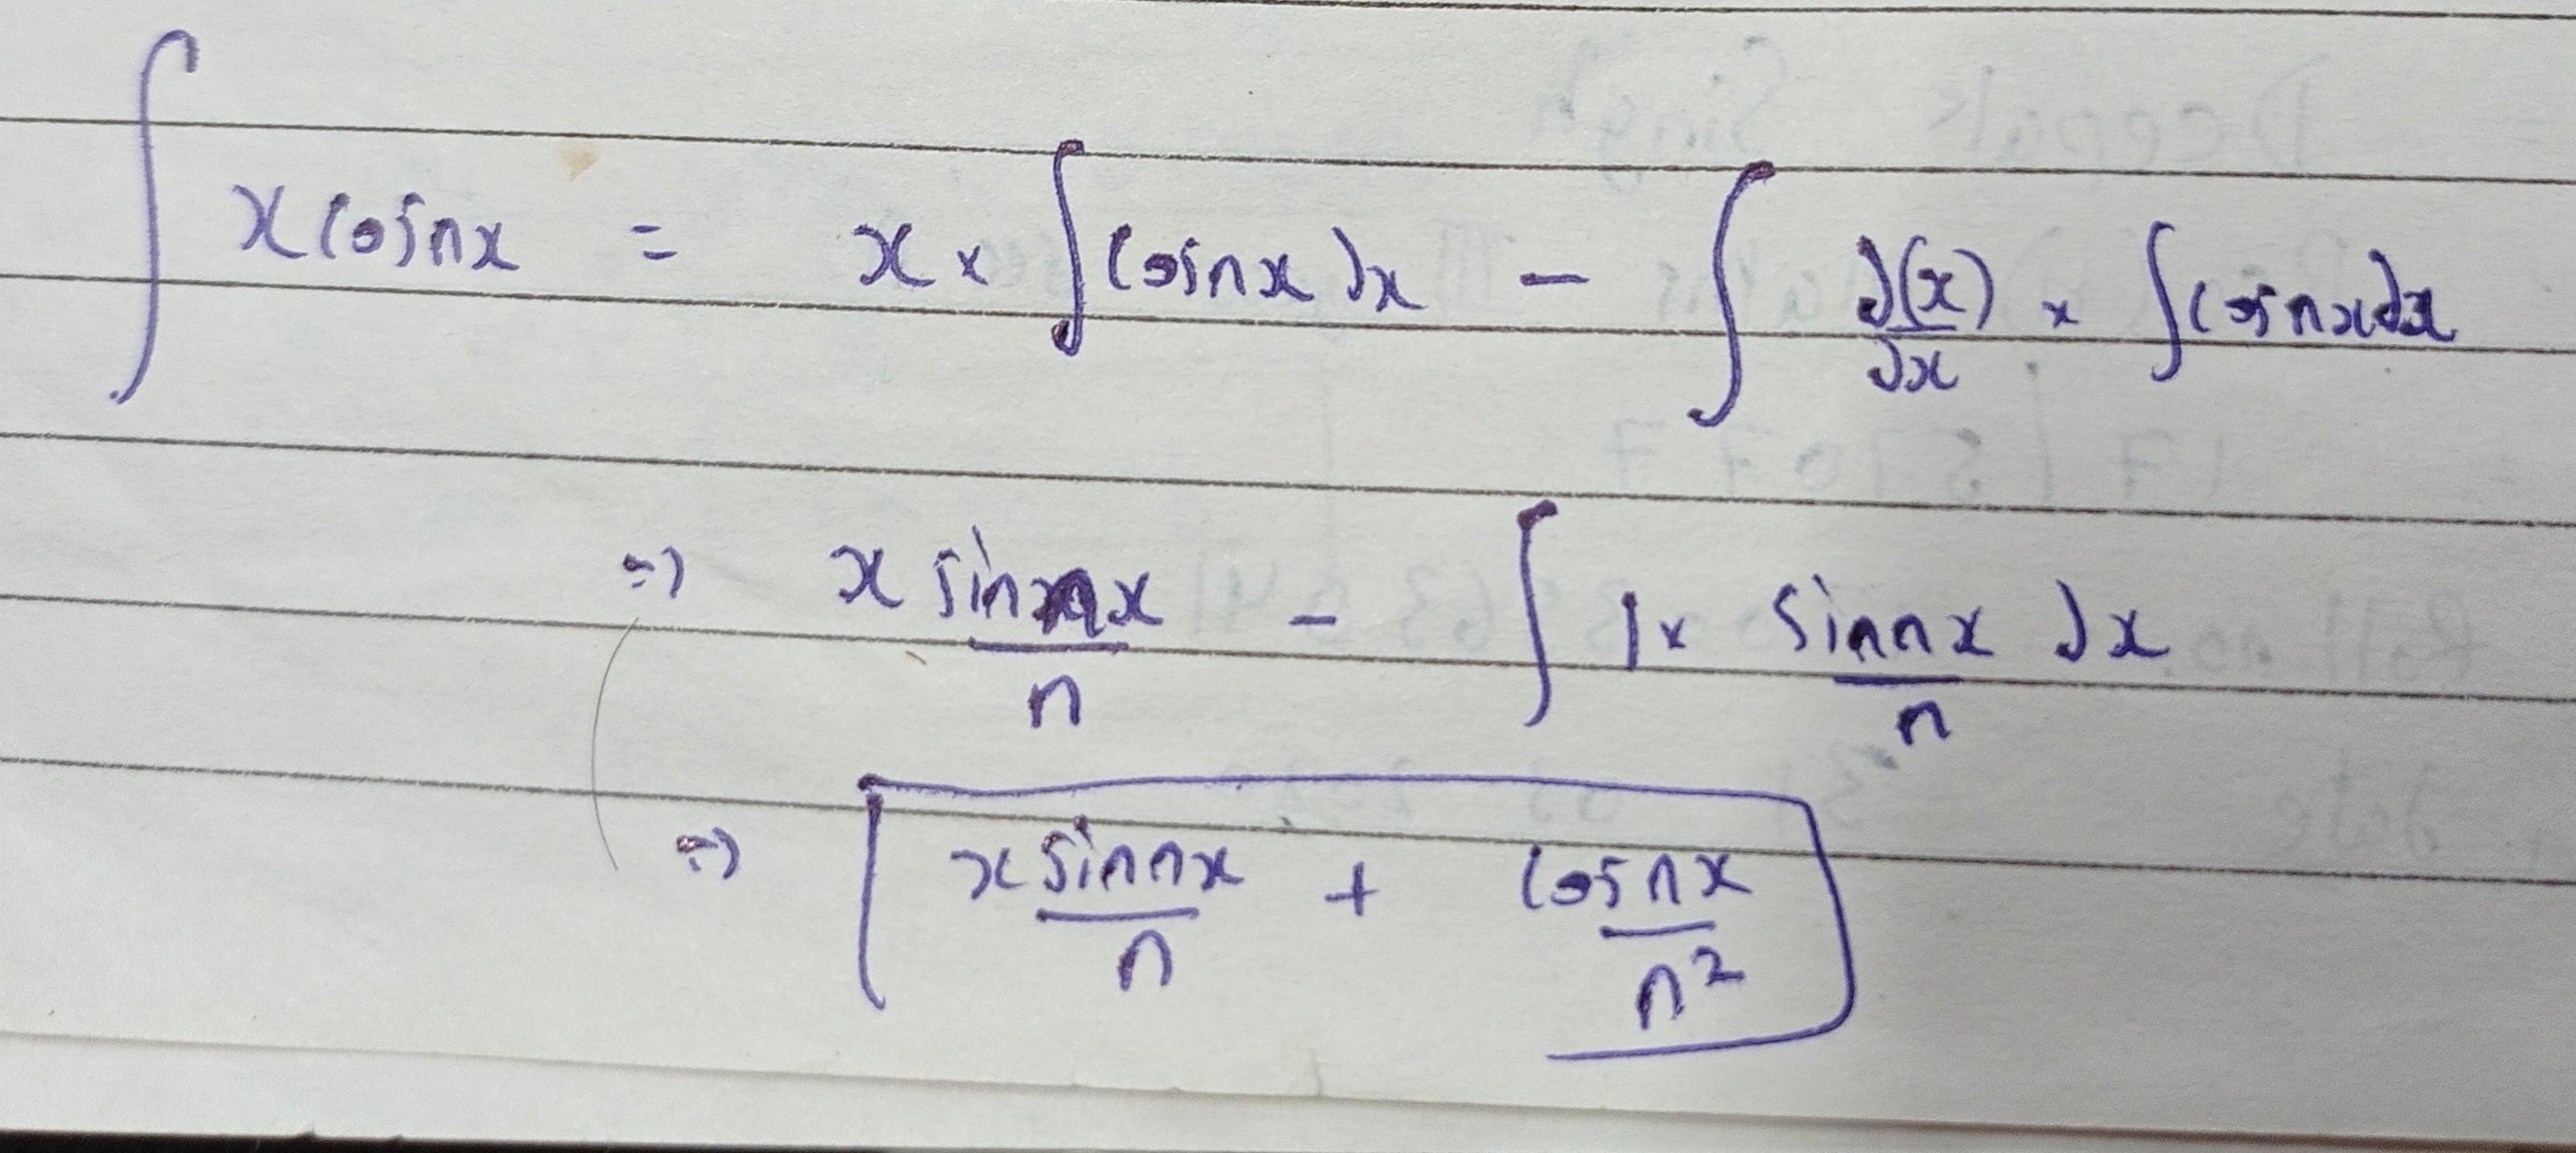 ∫ x cosnx = x × ∫ cosnx dx − ∫ d(x)/dx × ∫ cosnx dx
⇒ x sinnx/n − ∫ 1 × sinnx/n dx
⇒ x sinnx/n + cosnx/n²